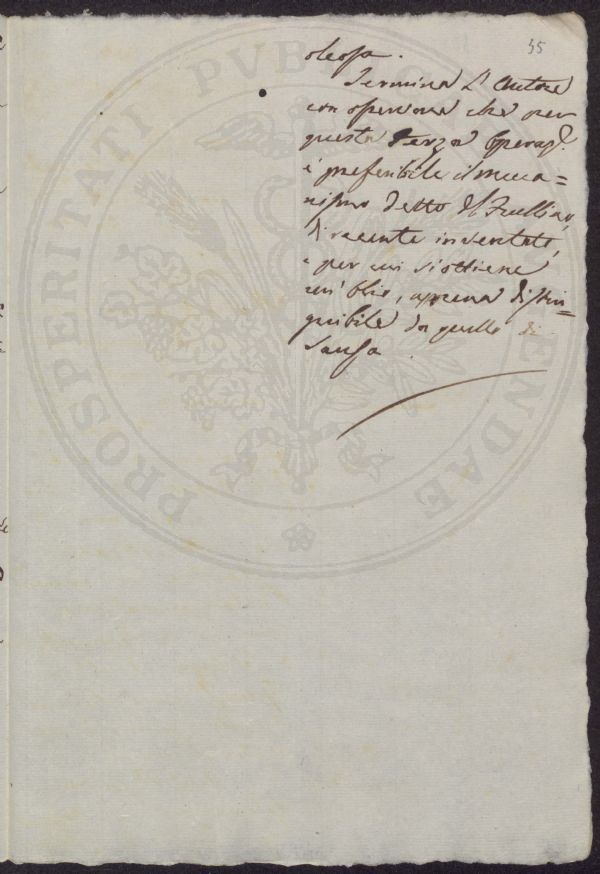 55
oleosa.
Termina L'Autore
con osservare che per
questa terza operaz.
è preferibile il mecca=
nismo detto del Frullino,
di recente inventato,
e per cui si ottiene
un'Olio, appena distin=
guibile da quello di
Sansa.
PROSPERITATI PVBLICAE AVGENDAE